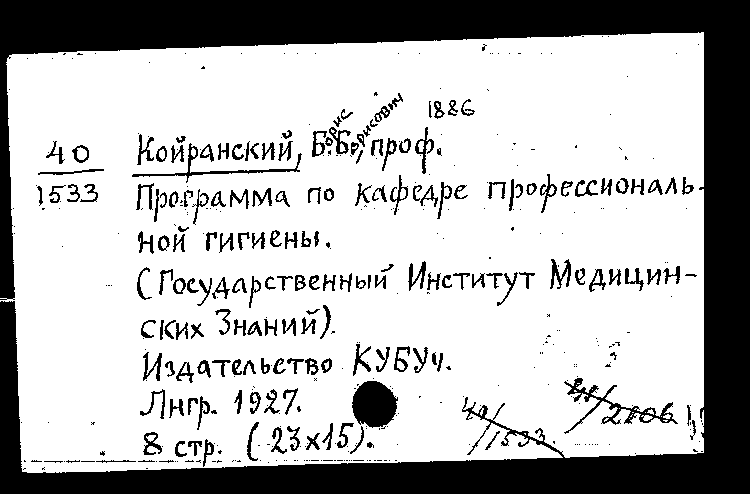 1886
40 Койранский, Б.Б., проф.
орис орисович
1533 Программа по кафедре профессиональ-
ной гигиены.
(Государственный Институт Медицин-
ских Знаний).
Издательство КУБУч.
Лнгр. 1927.
8 стр. (23х15).
40/1533